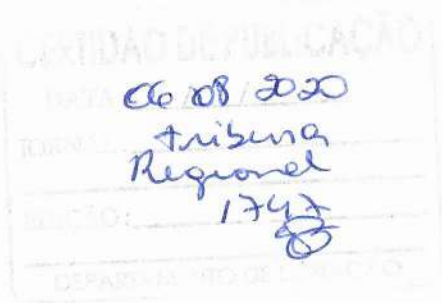 CERTIDÃO DE PUBLICAÇÃO
DATA 06/08/2020
JORNAL: Tribuna
Regional
EDIÇÃO: 1747
DEPARTAMENTO DE LICITAÇÃO